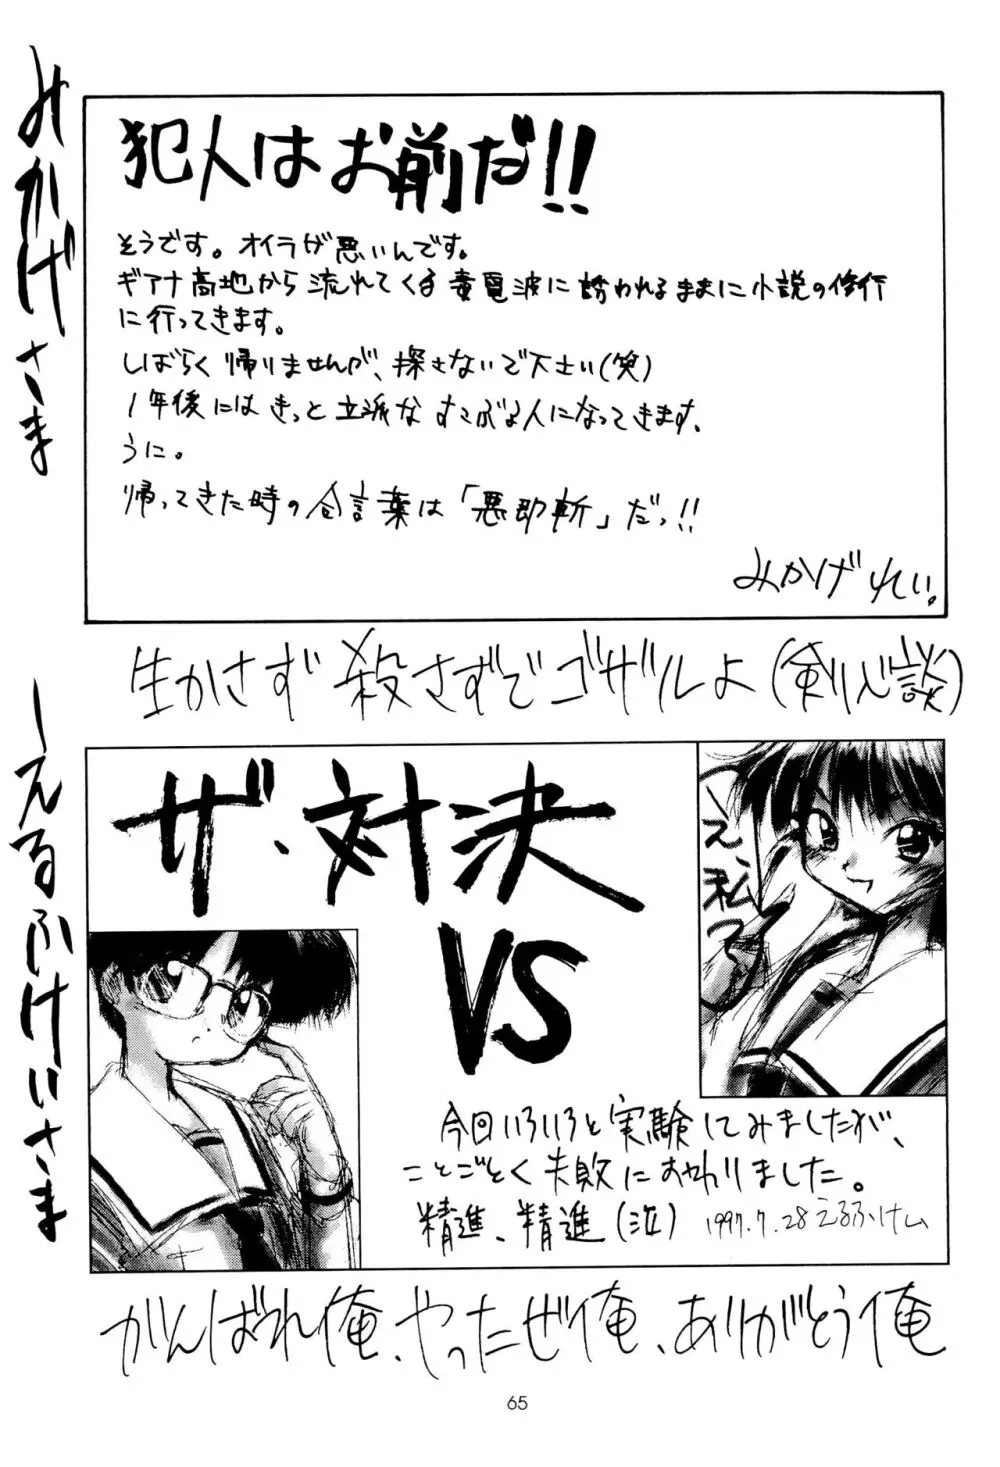 みかげさま
犯人はお前だ!!
そうです。オイラが悪いんです。
ギアナ高地から流れてくる毒電波に誘われるままに小説の修行
に行ってきます。
しばらく帰りませんが、探さないで下さい(笑)
1年後にはきっと立派なすこぶる人になってきます。
うに。
帰ってきた時の合言葉は「悪即斬」だっ!!
みかげれい。
生かさず殺さずでゴザルよ(剣心談)
ーえるふけいさま
ザ・対決
VS
え、私っ
今回いろいろと実験してみましたが、
ことごとく失敗におわりました。
精進、精進(泣) 1997.7.28 えるふけい
がんばれ俺、やったぜ俺、ありがとう俺
65